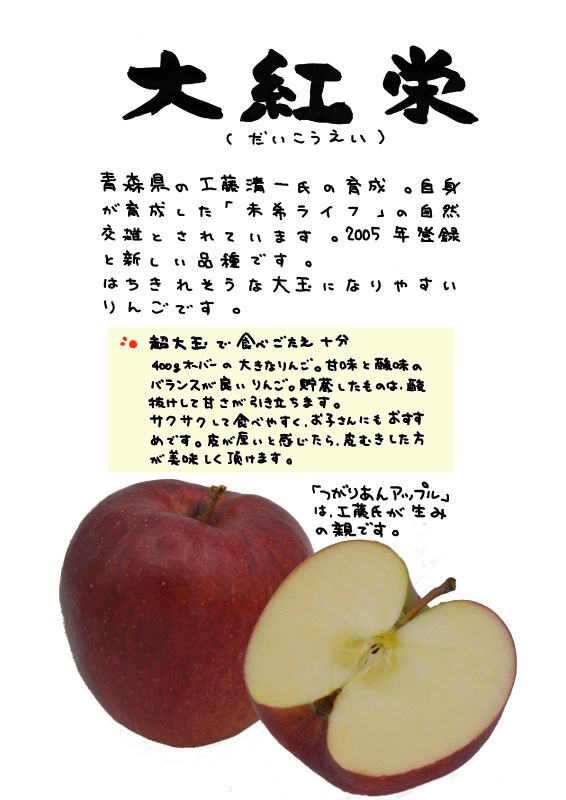 大紅栄
(だいこうえい)
青森県の工藤清一氏の育成。自身
が育成した「未希ライフ」の自然
交雑とされています。2005年登録
と新しい品種です。
はちきれそうな大玉になりやすい
りんごです。
超大玉で食べごたえ十分
400gオーバーの大きなりんご。甘味と酸味の
バランスが良いりんご。貯蔵したものは、酸
抜けして甘さが引き立ちます。
サクサクして食べやすく、お子さんにもおすす
めです。皮が厚いと感じたら、皮むきした方
が美味しく頂けます。
「つがりあんアップル」
は、工藤氏が生み
の親です。